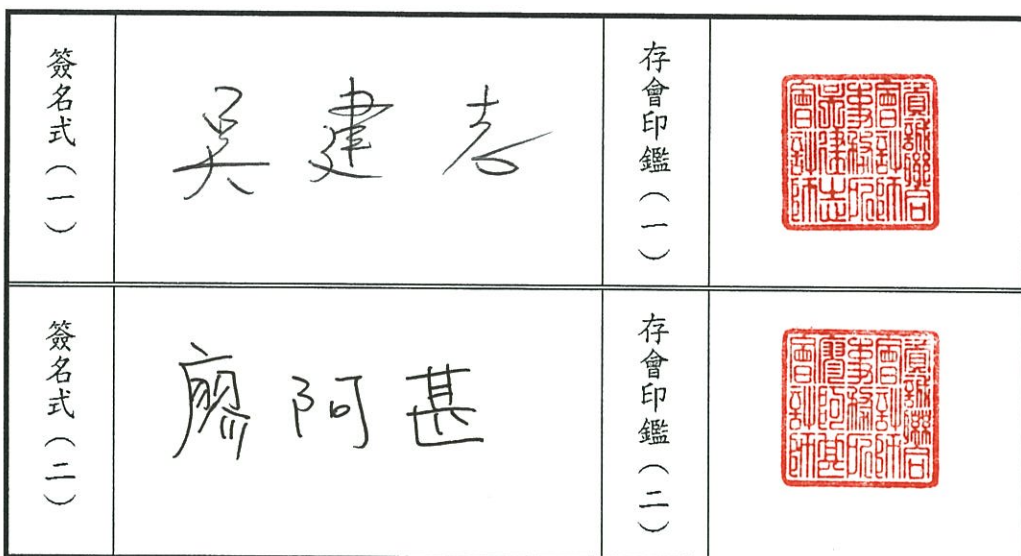 簽名式（一）
吳建志
存會印鑑（一）
資誠聯合
會計師
事務所
吳建志
會計師
簽名式（二）
廖阿甚
存會印鑑（二）
資誠聯合
會計師
事務所
廖阿甚
會計師